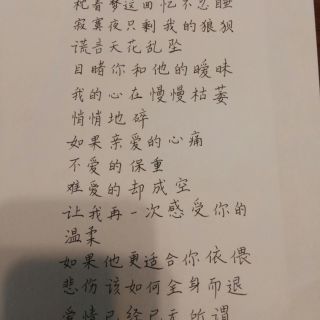 枕着梦这回忆不忍睡
寂寞夜只剩我的狼狈
谎言天花乱坠
目睹你和他的暧昧
我的心在慢慢枯萎
悄悄地碎
如果亲爱的心痛
不爱的保重
难爱的却成空
让我再一次感受你的
温柔
如果他更适合你依偎
悲伤该如何全身而退
爱情已经已无所谓